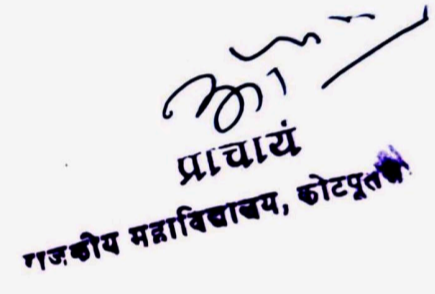 प्राचार्य
राजकीय महाविद्यालय, कोटपूतली